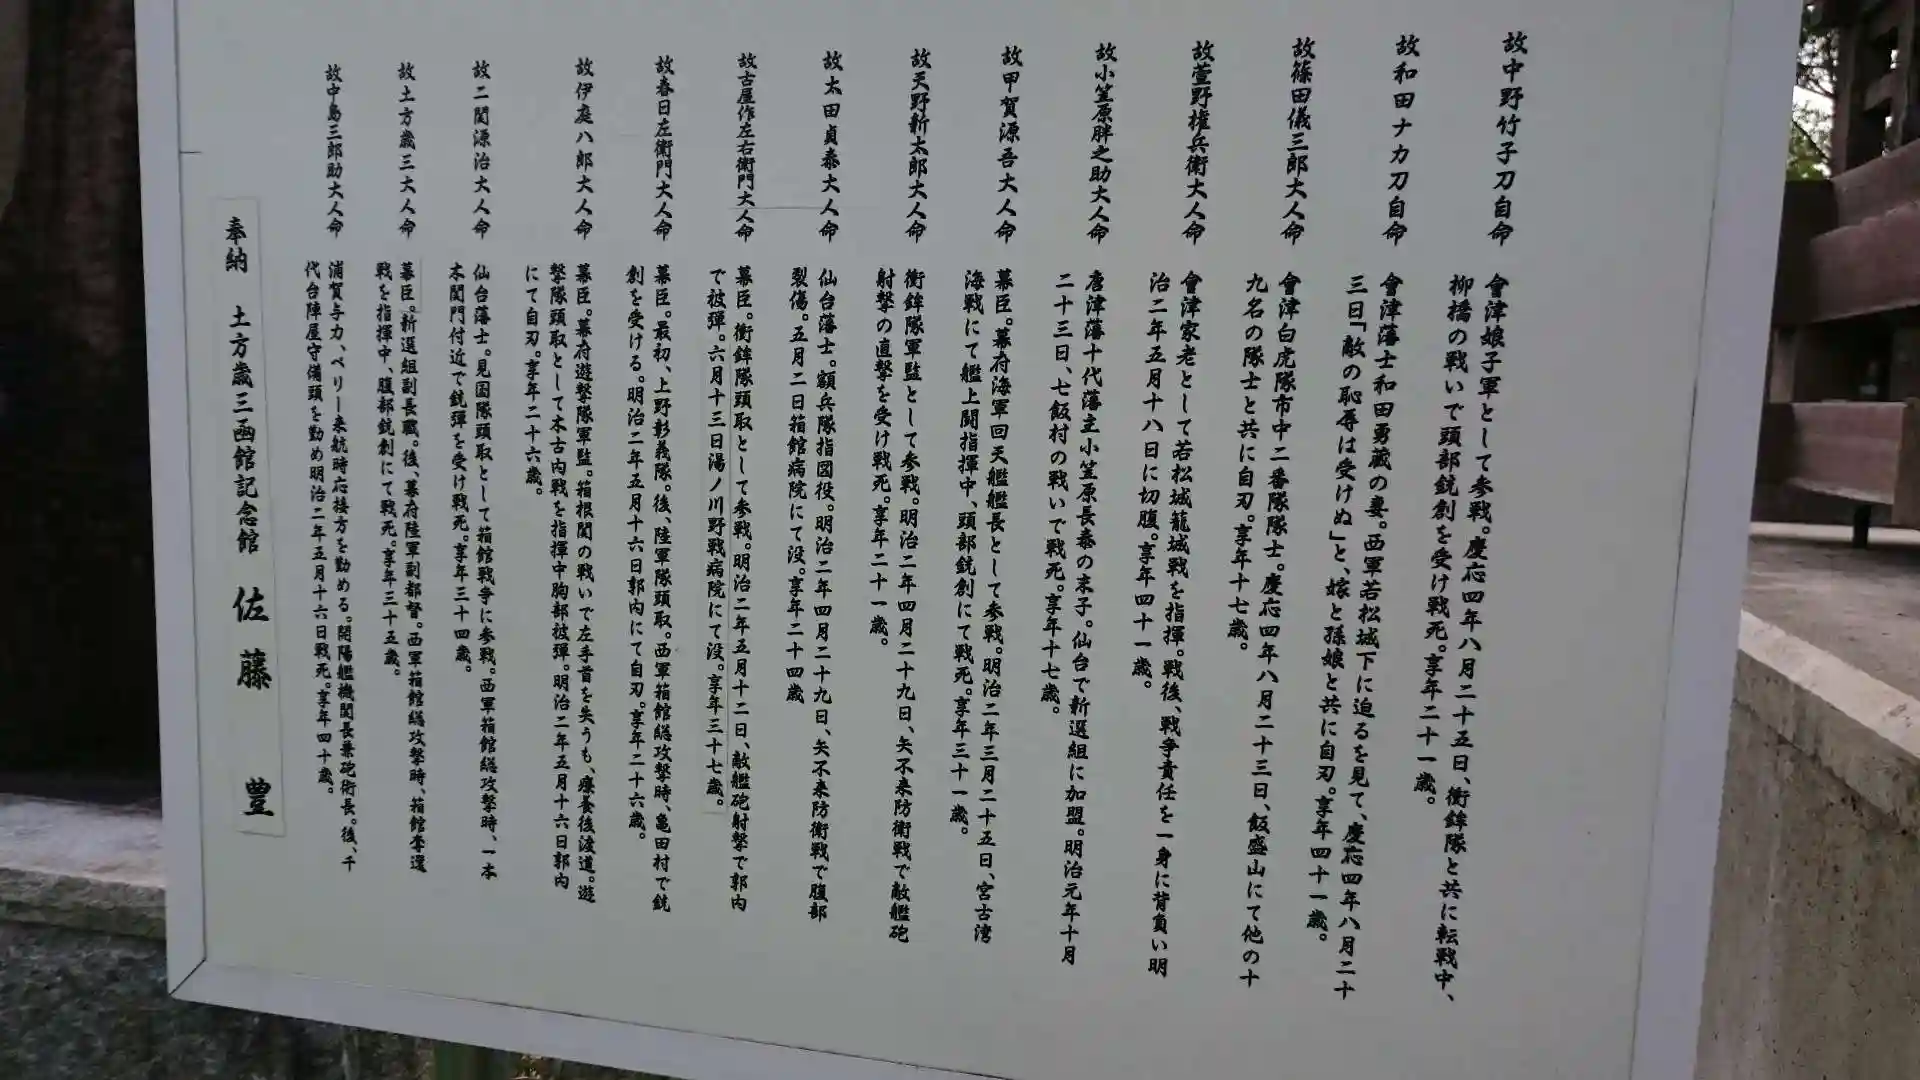 故中野竹子刀自命
會津娘子軍として参戦。慶応四年八月二十五日、衝鉾隊と共に転戦中、
柳橋の戦いで頭部銃創を受け戦死。享年二十一歳。
故和田ナカ刀自命
會津藩士和田勇蔵の妻。西軍若松城下に迫るを見て、慶応四年八月二十
三日「敵の恥辱は受けぬ」と、嫁と孫娘と共に自刃。享年四十一歳。
故篠田儀三郎大人命
會津白虎隊市中二番隊隊士。慶応四年八月二十三日、飯盛山にて他の十
九名の隊士と共に自刃。享年十七歳。
故萱野権兵衛大人命
會津家老として若松城籠城戦を指揮。戦後、戦争責任を一身に背負い明
治二年五月十八日に切腹。享年四十一歳。
故小笠原胖之助大人命
唐津藩十代藩主小笠原長泰の末子。仙台で新選組に加盟。明治元年十月
二十三日、七飯村の戦いで戦死。享年十七歳。
故甲賀源吾大人命
幕臣。幕府海軍回天艦艦長として参戦。明治二年三月二十五日、宮古湾
海戦にて艦上闘指揮中、頭部銃創にて戦死。享年三十一歳。
故天野新太郎大人命
衝鉾隊軍監として参戦。明治二年四月二十九日、矢不来防衛戦で敵艦砲
射撃の直撃を受け戦死。享年二十一歳。
故太田貞泰大人命
仙台藩士。額兵隊指図役。明治二年四月二十九日、矢不来防衛戦で腹部
裂傷。五月二日箱館病院にて没。享年二十四歳
故古屋作左右衛門大人命
幕臣。衝鉾隊頭取として参戦。明治二年五月十二日、敵艦砲射撃で郭内
で被弾。六月十三日湯ノ川野戦病院にて没。享年三十七歳。
故春日左衛門大人命
幕臣。最初、上野彰義隊。後、陸軍隊頭取。西軍箱館総攻撃時、亀田村で銃
創を受ける。明治二年五月十六日郭内にて自刃。享年二十六歳。
故伊庭八郎大人命
幕臣。幕府遊撃隊軍監。箱根関の戦いで左手首を失うも、療養後渡道。遊
撃隊頭取として木古内戦を指揮中胸部被弾。明治二年五月十六日郭内
にて自刃。享年二十六歳。
故二関源治大人命
仙台藩士。見国隊頭取として箱館戦争に参戦。西軍箱館総攻撃時、一本
木関門付近で銃弾を受け戦死。享年三十四歳。
故土方歳三大人命
幕臣。新選組副長職。後、幕府陸軍副都督。西軍箱館総攻撃時、箱館奪還
戦を指揮中、腹部銃創にて戦死。享年三十五歳。
故中島三郎助大人命
浦賀与力、ペリー来航時応接方を勤める。開陽艦機関長兼砲術長。後、千
代台陣屋守備頭を勤め明治二年五月十六日戦死。享年四十歳。
奉納 土方歳三函館記念館 佐藤 豊